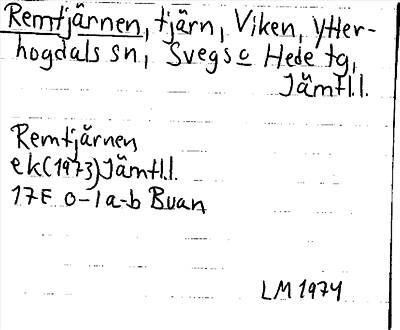 Remtjärnen, tjärn, Viken, Ytter-
hogdals sn, Svegs o Hede tg,
Jämtl.l.
Remtjärnen
ek(1973)Jämtl.l.
17F 0-1a-b Buan
LM 1974